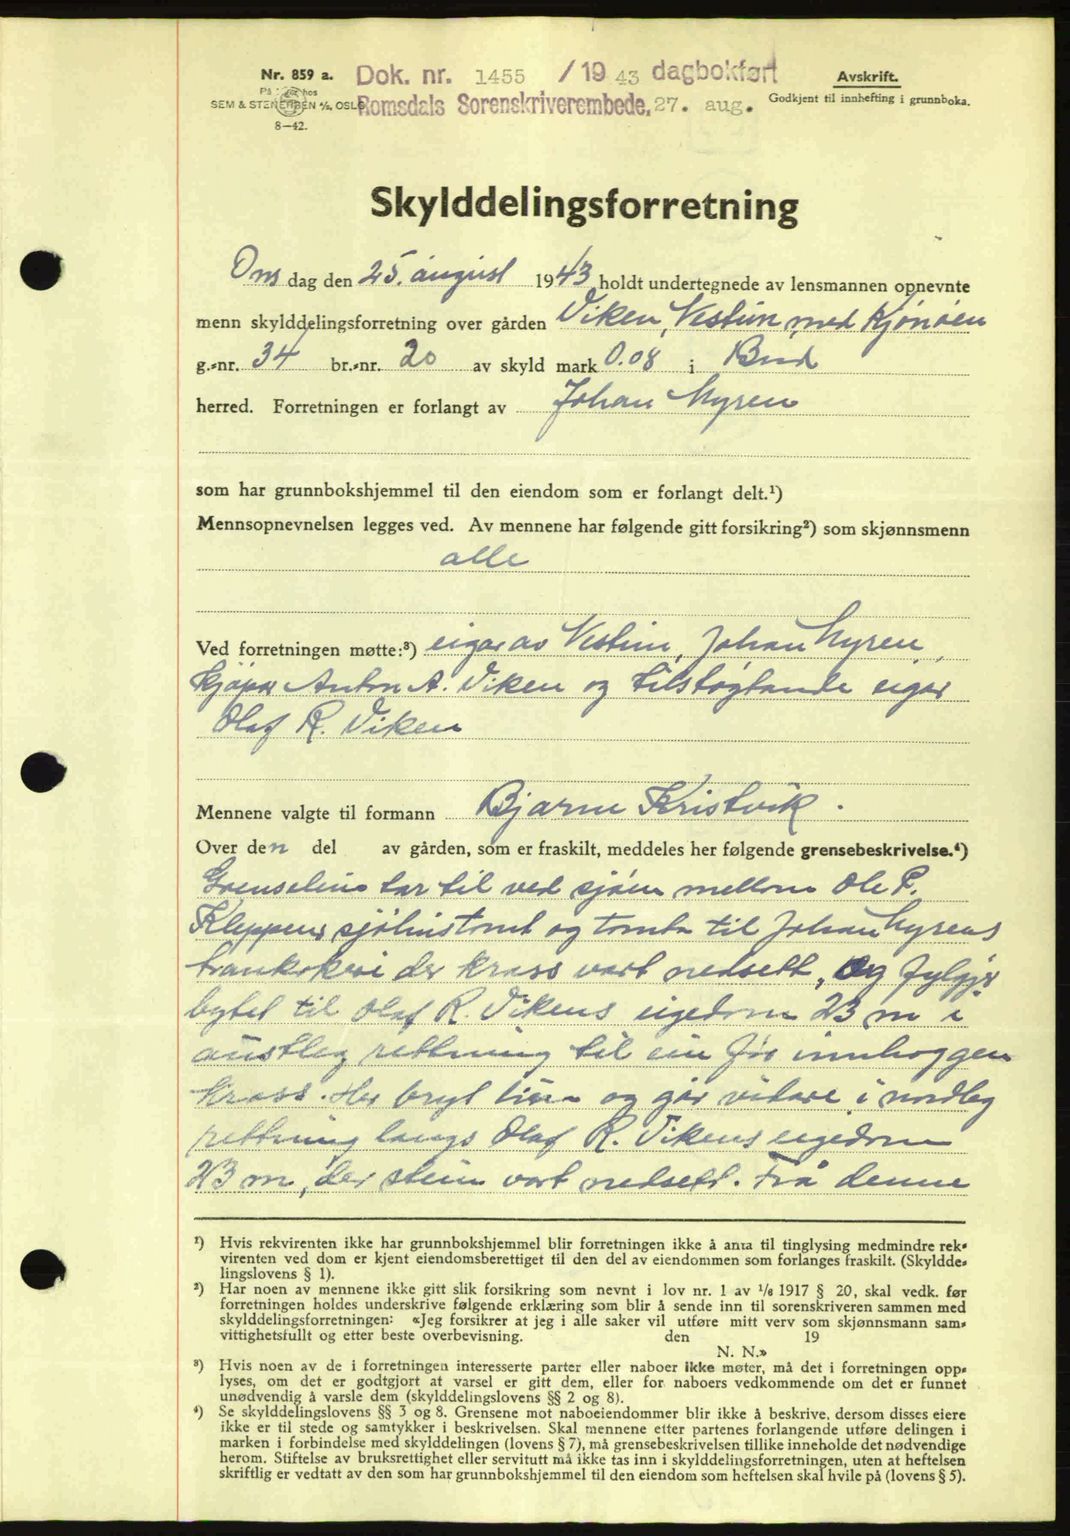 Nr. 859 a.
Dok. nr. 1455 / 19 43 dagbokført
Avskrift.
På hos
SEM & STENERSEN A/S, OSLO
Romsdals Sorenskriverembede, 27. aug.
Godkjent til innhefting i grunnboka.
8—42.
Skylddelingsforretning
Onsdag den 25. august 1943 holdt undertegnede av lensmannen oppnevnte
menn skylddelingsforretning over gården Viken, Vestun, med Kjønøen
g.-nr. 34 br.-nr. 20 av skyld mark 0.08 i Bud
herred. Forretningen er forlangt av Johan Myren
som har grunnbokshjemmel til den eiendom som er forlangt delt.¹)
Mennsopnevnelsen legges ved. Av mennene har følgende gitt forsikring²) som skjønnsmenn
alle
Ved forretningen møtte:³) eigar av Vestun, Johan Myren,
kjøpar Anton A. Viken og tilstøytande eigar
Olaf R. Viken
Mennene valgte til formann Bjarne Kristvik.
Over den del av gården, som er fraskilt, meddeles her følgende grensebeskrivelse.⁴)
Grenselina tar til ved sjøen mellom Ole P.
Kleppens sjøhustomt og tomta til Johan Myrens
trankokeri der kross vart nedsett, og fylgjer
bytet til Olaf R. Vikens eigedom 23 m i
austleg rettning til ein før innhoggen
kross. Her bryt lina og går vidare i nordleg
rettning langs Olaf R. Vikens eigedom
23 m, der stein vart nedsett. Frå denne
¹) Hvis rekvirenten ikke har grunnbokshjemmel blir forretningen ikke å anta til tinglysing medmindre rek-
virenten ved dom er kjent eiendomsberettiget til den del av eiendommen som forlanges fraskilt. (Skyldde-
lingslovens § 1).
²) Har noen av mennene ikke gitt slik forsikring som nevnt i lov nr. 1 av 1/6 1917 § 20, skal vedk. før
forretningen holdes underskrive følgende erklæring som blir å sende inn til sorenskriveren sammen med
skylddelingsforretningen: «Jeg forsikrer at jeg i alle saker vil utføre mitt verv som skjønnsmann sam-
vittighetsfullt og etter beste overbevisning. den 19
N. N.»
³) Hvis noen av de i forretningen interesserte parter eller naboer ikke møter, må det i forretningen opp-
lyses, om det er godtgjort at varsel er gitt dem, eller for naboers vedkommende om det er funnet
unødvendig å varsle dem (skylddelingslovens §§ 2 og 8).
⁴) Se skylddelingslovens §§ 3 og 8. Grensene mot naboeiendommer blir ikke å beskrive, dersom disses eiere
ikke er til stede og samtykker i beskrivelsen. Skal mennene etter partenes forlangende utføre delingen i
marken i forbindelse med skylddelingen (lovens § 7), må grensebeskrivelsen tillike inneholde det nødvendige
herom. Stiftelse av bruksrettighet eller servitutt må ikke tas inn i skylddelingsforretningen, uten at heftelsen
skriftlig er vedtatt av den som har grunnbokshjemmel til den eiendom som heftelsen skal hvile på (lovens § 5).